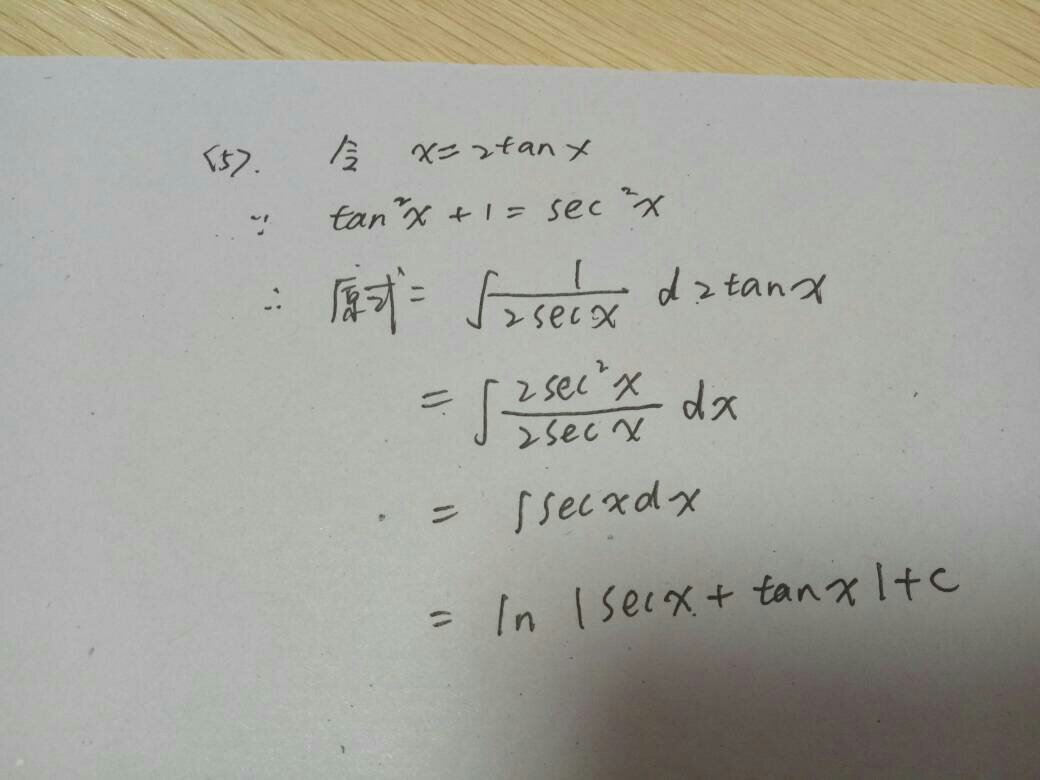 (5). 令 x=2tanx
∵ tan²x+1=sec²x
∴ 原式=∫1/(2secx) d2tanx
=∫2sec²x/(2secx) dx
=∫secxdx
=ln|secx+tanx|+c